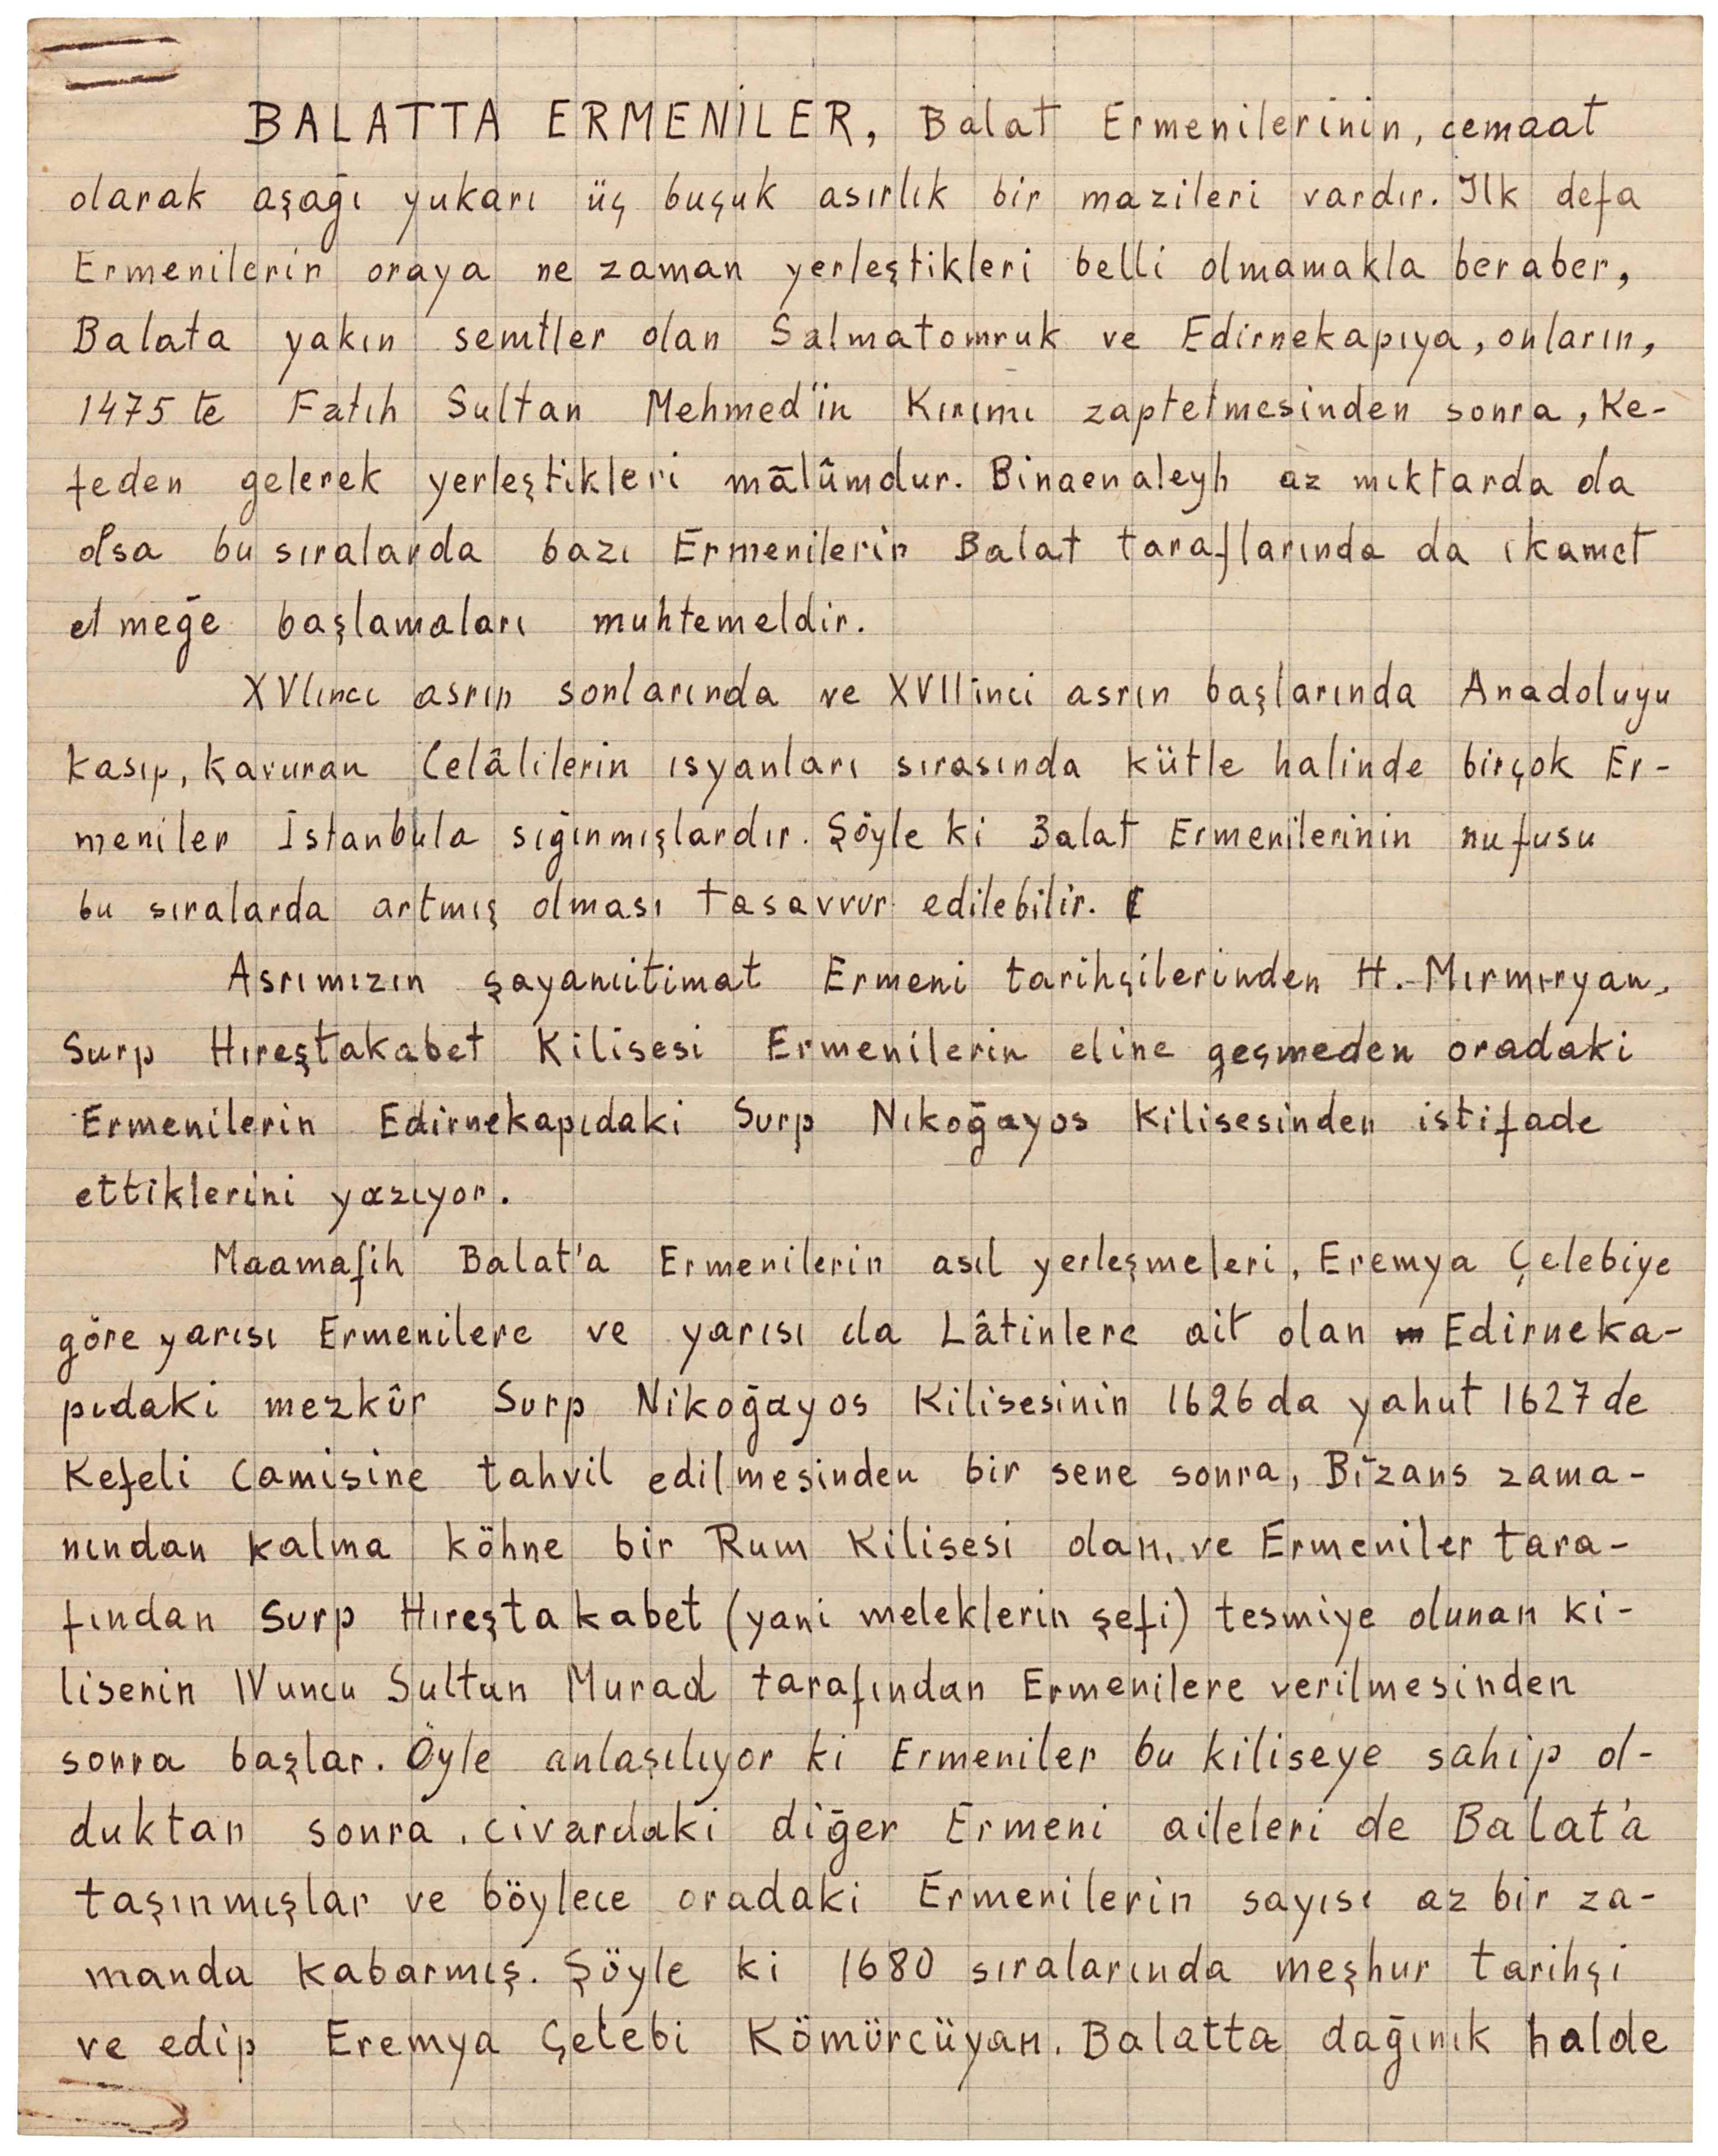 BALATTA ERMENİLER, Balat Ermenilerinin, cemaat
olarak aşağı yukarı üç buçuk asırlık bir mazileri vardır. Ilk defa
Ermenilerin oraya ne zaman yerleştikleri belli olmamakla beraber,
Balata yakın semtler olan Salmatomruk ve Edirnekapıya, onların,
1475 te Fatıh Sultan Mehmed'in Kırımı zaptetmesinden sonra, Ke-
feden gelerek yerleştikleri mālûmdur. Binaenaleyh az mıktarda da
olsa bu sıralarda bazı Ermenilerin Balat taraflarında da ıkamet
etmeğe başlamaları muhtemeldir.
XVIıncı asrın sonlarında ve XVIIinci asrın başlarında Anadoluyu
kasıp, kavuran Celâlilerin ısyanları sırasında kütle halinde birçok Er-
meniler İstanbula sığınmışlardır. Şöyle ki Balat Ermenilerinin nufusu
bu sıralarda artmış olması tasavvur edilebilir.
Asrımızın şayanıitimat Ermeni tarihçilerinden H. Mırmıryan,
Surp Hıreştakabet Kilisesi Ermenilerin eline geçmeden oradaki
Ermenilerin Edirnekapıdaki Surp Nıkoğayos Kilisesinden istifade
ettiklerini yazıyor.
Maamafih Balat'a Ermenilerin asıl yerleşmeleri, Eremya Çelebiye
göre yarısı Ermenilere ve yarısı da Lâtinlere ait olan Edirneka-
pıdaki mezkûr Surp Nikoğayos Kilisesinin 1626 da yahut 1627 de
Kefeli Camisine tahvil edilmesinden bir sene sonra, Bizans zama-
nından kalma köhne bir Rum Kilisesi olan, ve Ermeniler tara-
fından Surp Hıreştakabet (yani meleklerin şefi) tesmiye olunan ki-
lisenin IVuncu Sultan Murad tarafından Ermenilere verilmesinden
sonra başlar. Öyle anlaşılıyor ki Ermeniler bu kiliseye sahip ol-
duktan sonra, civardaki diğer Ermeni aileleri de Balat'a
taşınmışlar ve böylece oradaki Ermenilerin sayısı az bir za-
manda kabarmış. Şöyle ki 1680 sıralarında meşhur tarihçi
ve edip Eremya Çelebi Kömürcüyan, Balatta dağınık halde